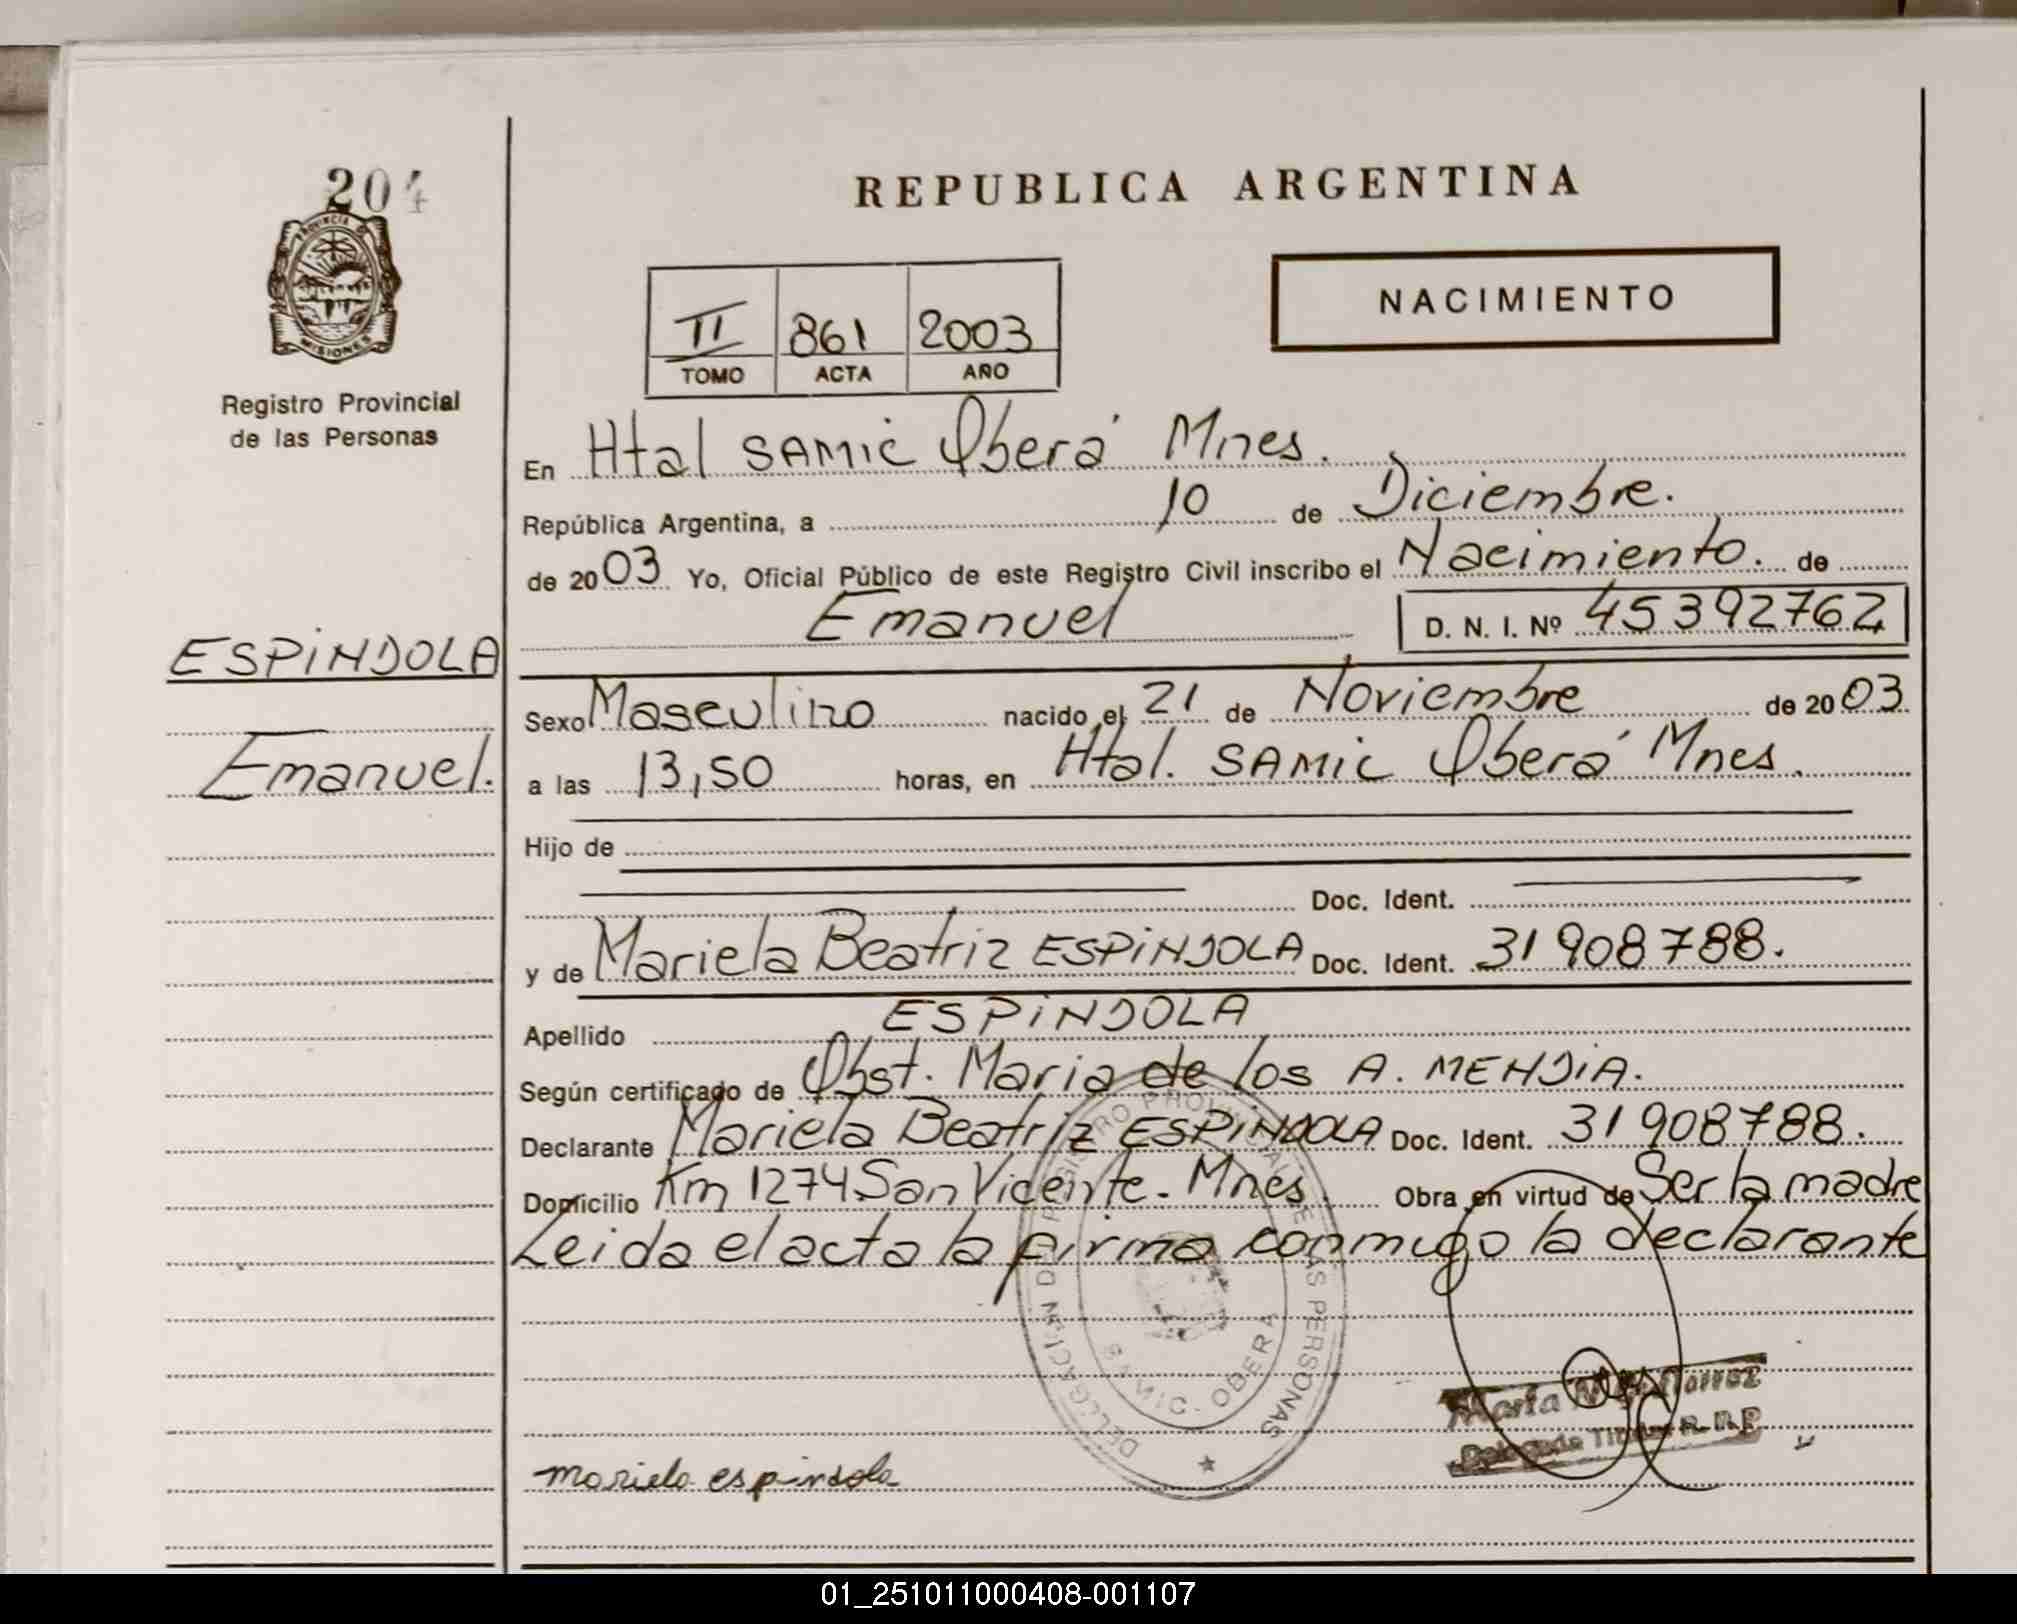 204
REPUBLICA ARGENTINA
PROVINCIA DE
MISIONES
Registro Provincial
de las Personas
NACIMIENTO
II 861 2003
TOMO ACTA AÑO
En Htal SAMIC Oberá Mnes.
República Argentina, a 10 de Diciembre.
de 2003 Yo, Oficial Público de este Registro Civil inscribo el Nacimiento. de
Emanuel D. N. I. Nº 45392762
ESPINDOLA
Emanuel.
Sexo Masculino nacido el 21 de Noviembre de 2003
a las 13,50 horas, en Htal. SAMIC Oberá Mnes.
Hijo de
Doc. Ident.
y de Mariela Beatriz ESPINDOLA Doc. Ident. 31908788.
Apellido ESPINDOLA
Según certificado de Obst. Maria de los A. MENDIA.
Declarante Mariela Beatriz ESPINDOLA Doc. Ident. 31908788.
Domicilio Km 1274 San Vicente. Mnes. Obra en virtud de Ser la madre
Leida el acta la firma conmigo la declarante
DELEGACION REGISTRO PROVINCIAL DE LAS PERSONAS
SAMIC - OBERA
María
Delegada Titular R. P.
mariela espindola
01_251011000408-001107